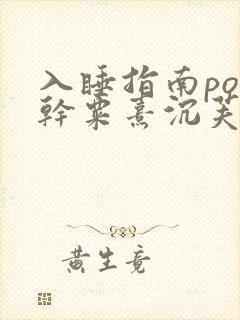 入睡指南po
幹粟熹沉芙
黄生竟